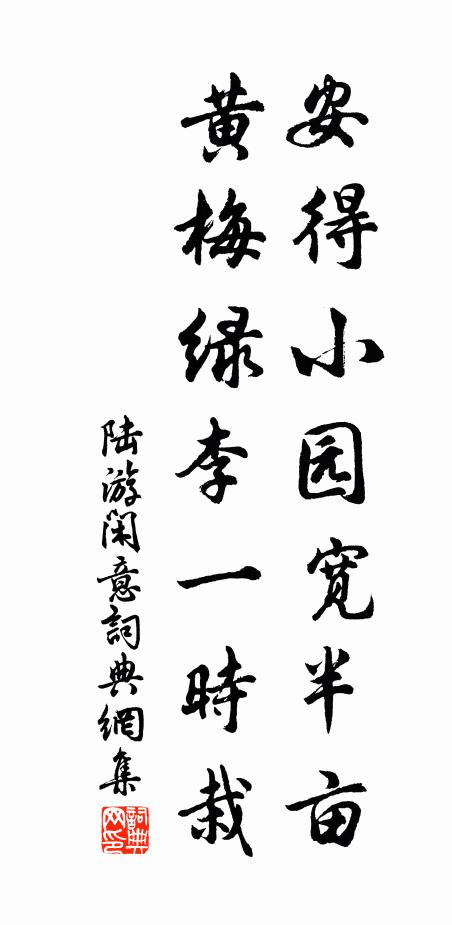 安得小园宽半亩
黄梅绿李一時栽
陆游闲意詞典網集
詞典网印